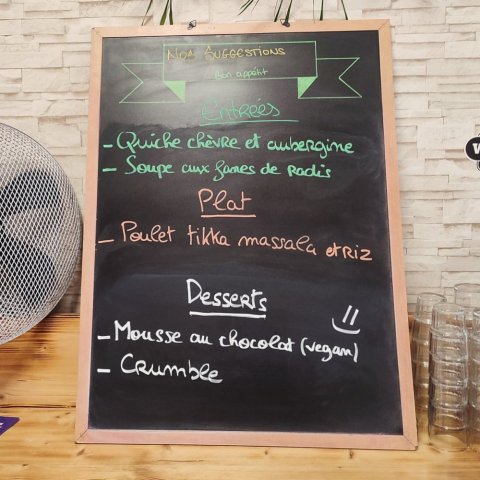 Nos Suggestions
Bon appétit
Entrées
- Quiche chèvre et aubergine
- Soupe aux fanes de radis
Plat
- Poulet tikka massala et riz
Desserts
- Mousse au chocolat (vegan)
- Crumble